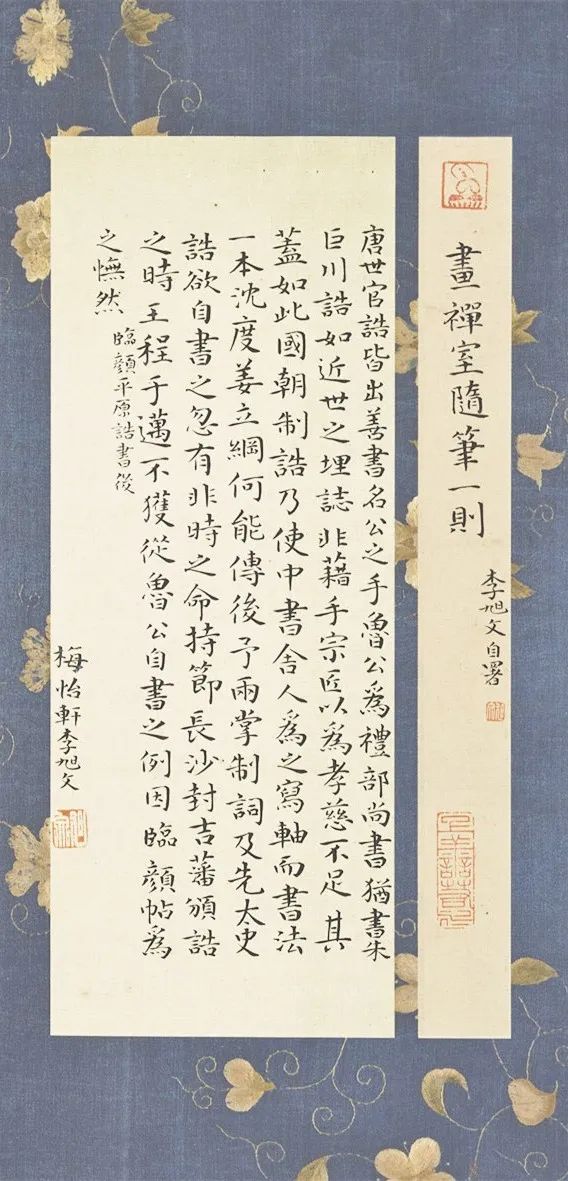 畫禪室隨筆一則
李旭文自署
唐世官誥皆出善書名公之手魯公爲禮部尚書猶書朱
巨川誥如近世之埋誌非藉手宗匠以爲孝慈不足其
蓋如此國朝制誥乃使中書舍人爲之寫軸而書法
一本沈度姜立綱何能傳後予兩掌制詞及先太史
誥欲自書之忽有非時之命持節長沙封吉藩頒誥
之時王程于邁不獲從魯公自書之例因臨顏帖爲
之憮然
臨顏平原誥書後
梅怡軒李旭文